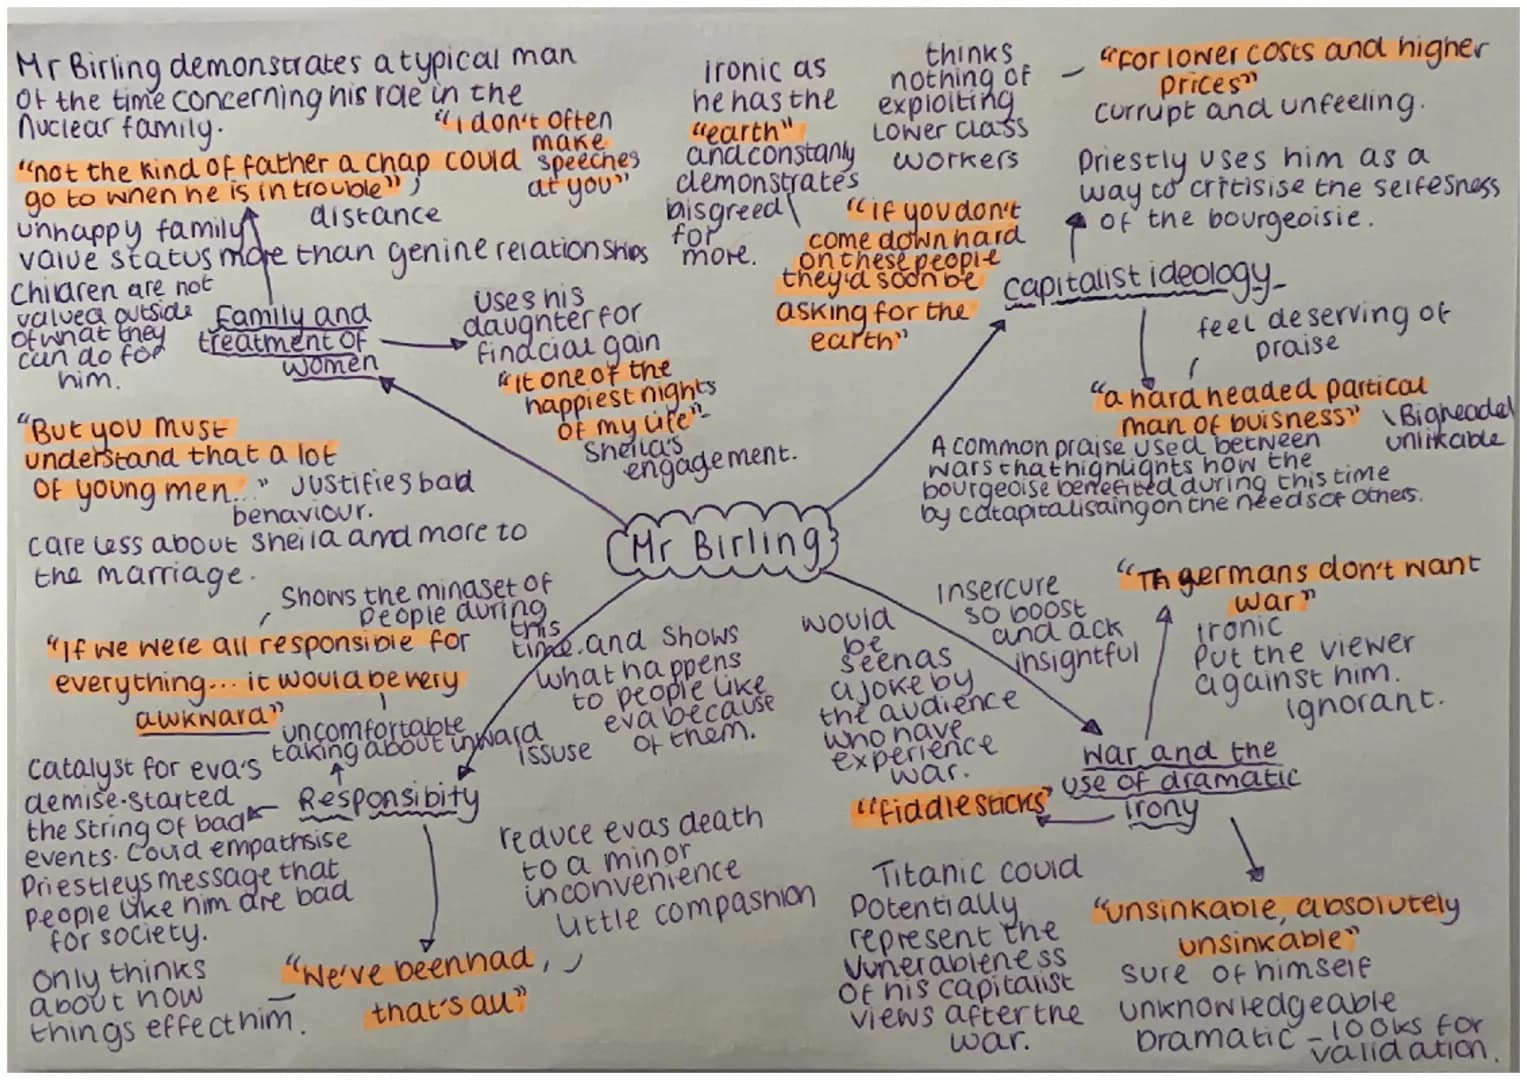 Mr Birling demonstrates a typical man
of the time concerning his role in the
nuclear family.
"I don't often
make
speeches
at you"
"not the kind of father a chap could
go to when he is in trouble",
distance
unhappy family
value status more than genine relationships
Children are not
valued outside
of what they
can do for
him.
Family and
treatment of
women
uses his
daughter for
finacial gain
"it one of the
happiest nights
of my life"-
Sheila's
engagement.
"But you must
understand that a lot
of young men..." Justifies bad
behaviour.
care less about Sheila and more to
the marriage.
ironic as
he has the
"earth"
and constanly
demonstrates
hisgreed
for
more.
thinks
nothing of
exploiting
lower class
workers
"if you don't
come down hard
on these people
they'd soon be
asking for the
earth"
- "for lower costs and higher
prices"
currupt and unfeeling.
Priestly uses him as a
way to critisise the selfesness
of the bourgeoisie.
capitalist ideology
feel deserving of
praise
"a hard headed partical
man of buisness"
Bigheaded
unlikable
A common praise used between
wars that highlights how the
bourgeoise benefited during this time
by catapitalisaing on the needs of others.
Mr Birling
Shows the mindset of
people during
this
time. and shows
what happens
to people like
eva because
of them.
"If we were all responsible for
everything... it would be very
awkward"
uncomfortable
talking about inward
issuse
Catalyst for eva's
demise. started
the string of bad
events. Could empathsise
Priestleys message that
people like him are bad
for society.
Responsibity
reduce evas death
to a minor
inconvenience
little compashion
only thinks
about how
things effect him.
"We've been had,
that's all"
would
be
seen as
a joke by
the audience
who have
experience
war.
insercure
so boost
and ack
insightful
"Th germans don't want
war"
ironic
Put the viewer
against him.
ignorant.
war and the
use of dramatic
irony
"fiddlesticks"
Titanic could
Potentially
represent the
vunerableness
of his capitalist
views after the
war.
"unsinkable, absolutely
unsinkable"
sure of himself
unknowledgeable
Dramatic - looks for
validation.